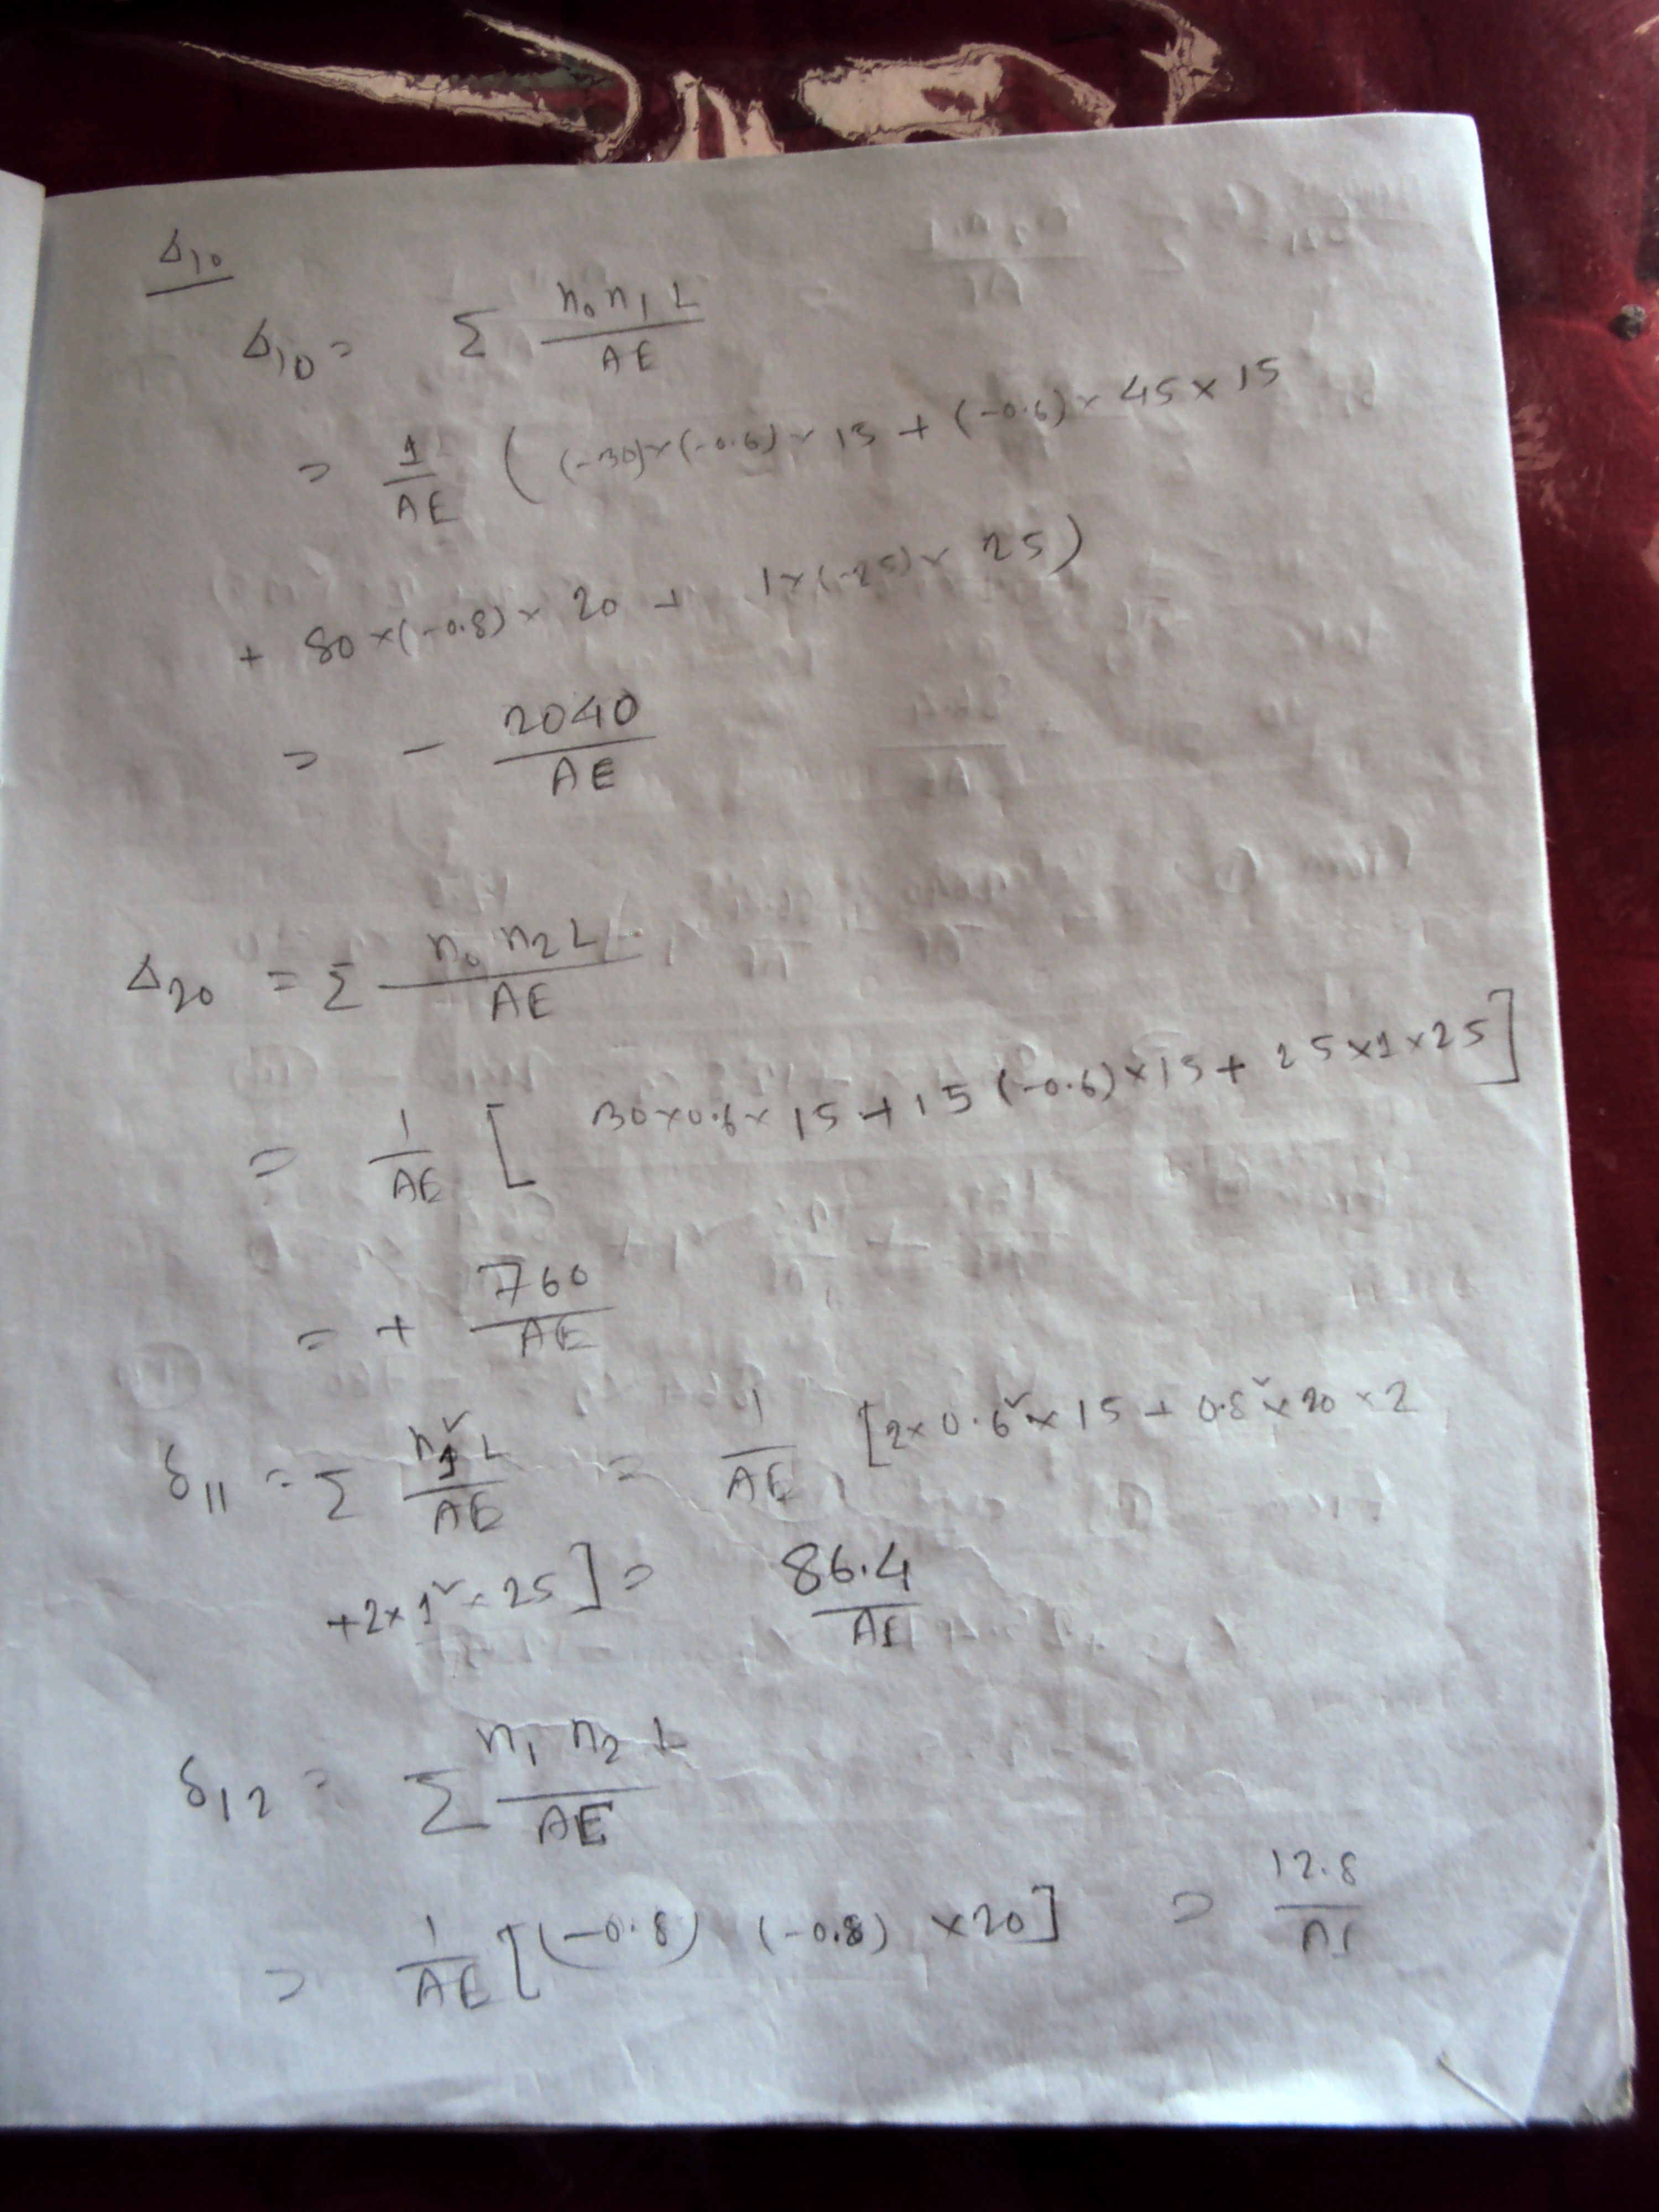 Δ10
Δ10 = Σ n0 n1 L / AE
= 1/AE ( (-30)×(-0.6)×15 + (-0.6)×45×15
+ 80×(-0.8)×20 + 1×(-25)×25)
= - 2040/AE
Δ20 = Σ n0 n2 L / AE
= 1/AE [ 30×0.6×15 + 15 (-0.6)×15 + 25×1×25]
= + 760/AE
δ11 = Σ n1² L / AE = 1/AE [2×0.6²×15 + 0.8²×20×2
+2×1²×25] = 86.4/AE
δ12 = Σ n1 n2 L / AE
= 1/AE [(-0.8) (-0.8) ×20] = 12.8/AE